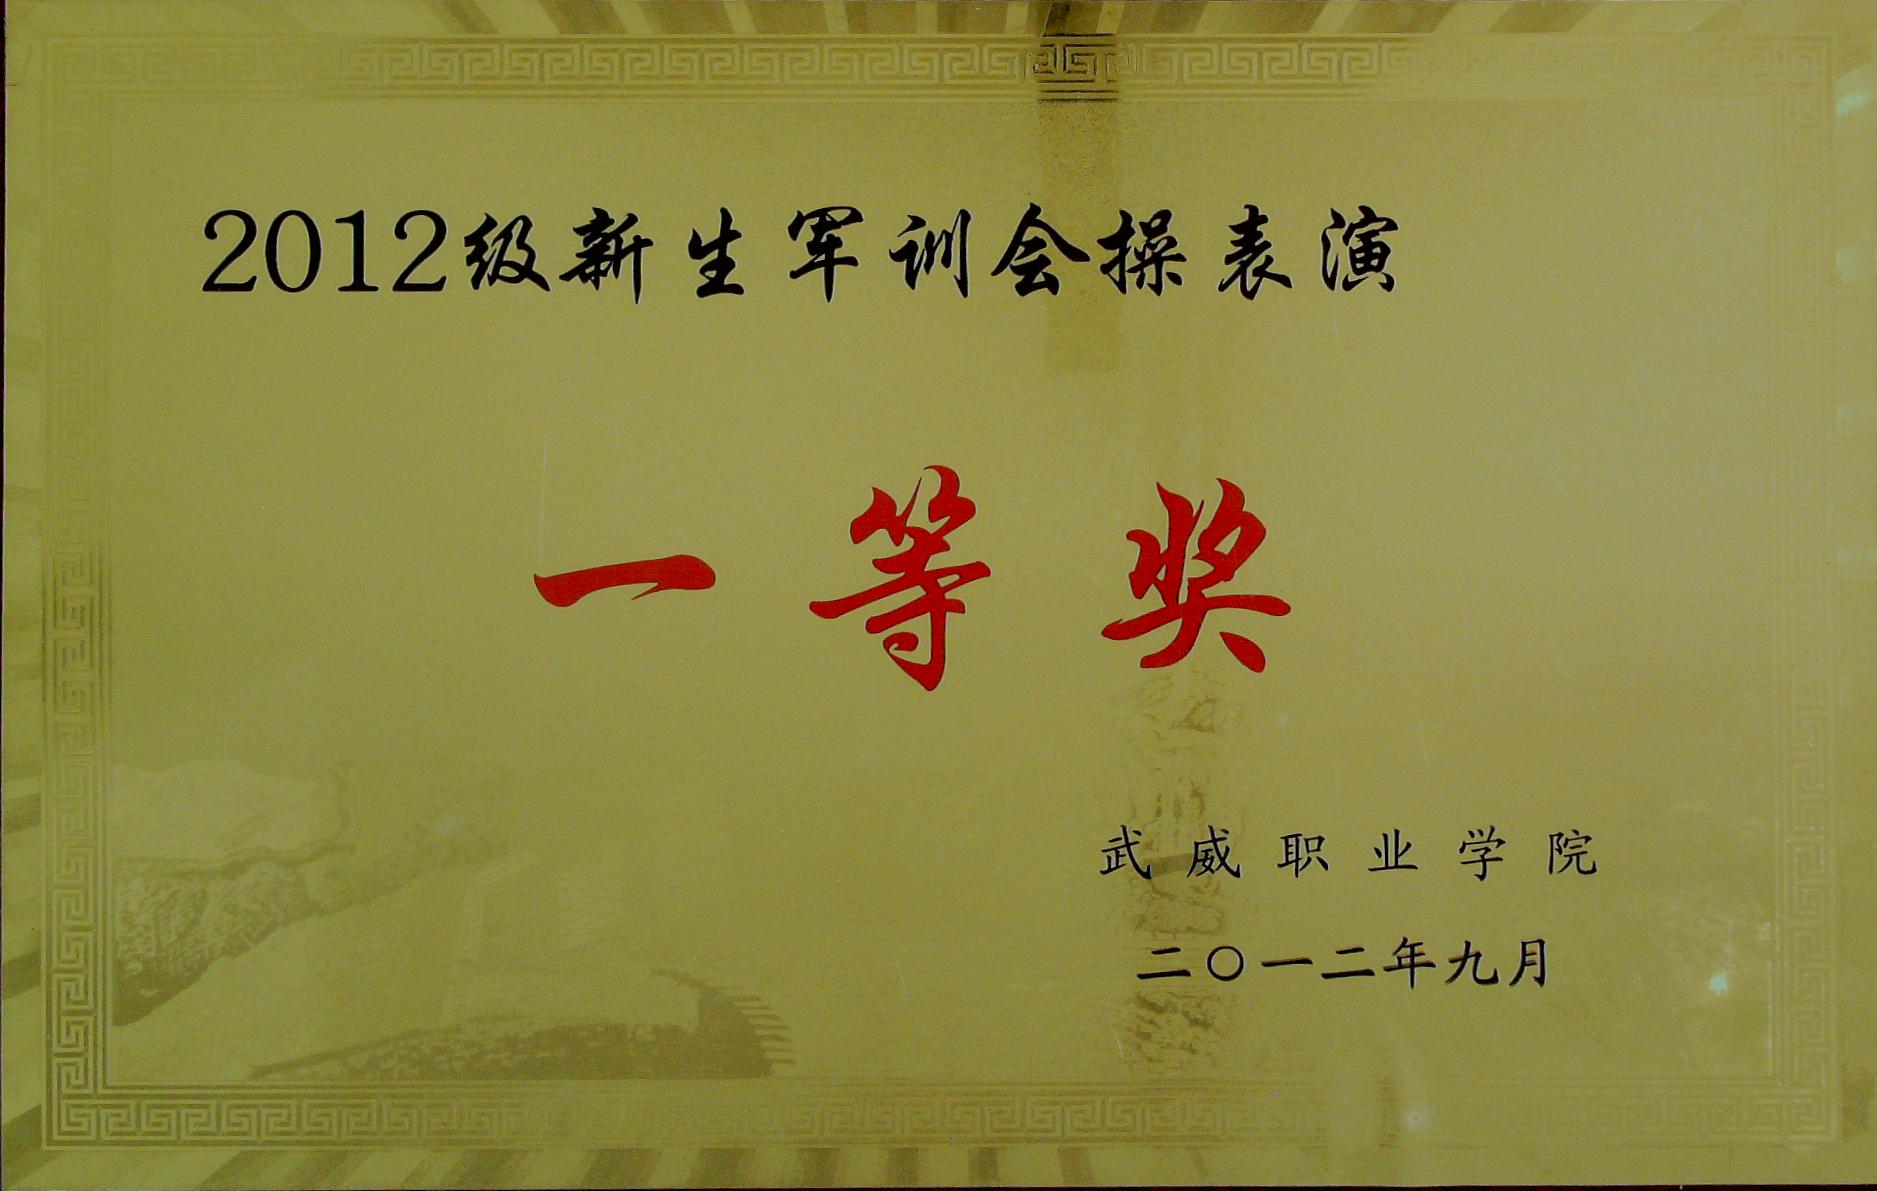 2012级新生军训会操表演
一等奖
武威职业学院
二〇一二年九月